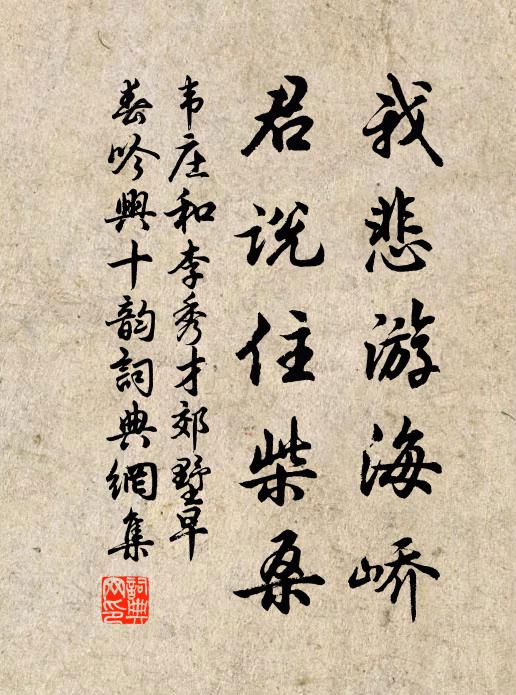 我悲游海峤
君说住柴桑
韦庄和李秀才郊墅早
春吟興十韵詞典網集
詞典網印